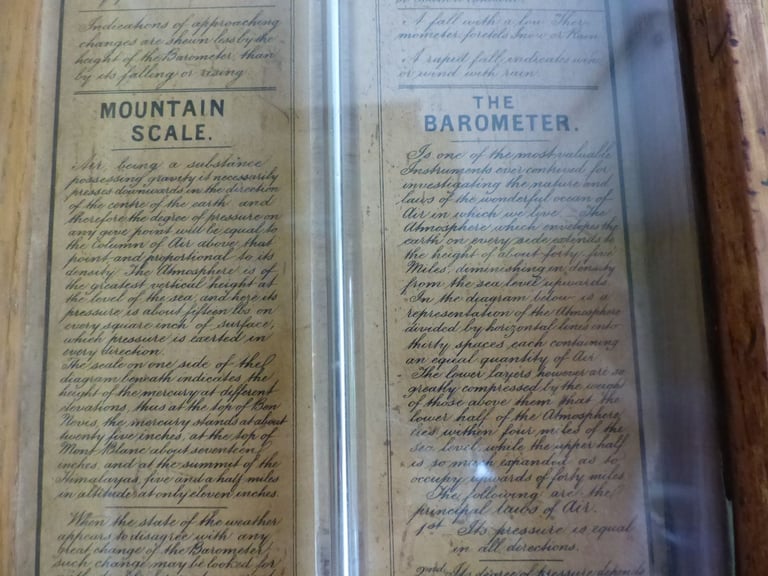 Indications of approaching
changes are shewn less by the
height of the Barometer, than
by its falling or rising.
MOUNTAIN
SCALE.
Air, being a substance
possessing gravity is necessarily
presses downwards in the direction
of the centre of the earth and
therefore the degree of pressure on
any give point will be equal to
the Column of Air above that
point and proportional to its
density. The Atmosphere is of
the greatest vertical height at
the level of the sea, and here its
pressure is about fifteen lbs on
every square inch of surface,
which pressure is exerted in
every direction.
The scale on one side of the
diagram beneath indicates the
height of the mercury at different
elevations, thus at the top of Ben
Neves, the mercury stands at about
twenty five inches, at the top of
Mont Blanc about seventeen
inches and at the summit of the
Himalayas, five and a half miles
in altitude at only eleven inches.
When the state of the weather
appears to disagree with any
great change of the Barometer,
such change may be looked for
A fall with a low Ther-
mometer foretels Snow or Rain.
A rapid fall indicates wind
or wind with rain.
THE
BAROMETER.
Is one of the most valuable
Instruments ever contrived for
investigating the nature and
laws of the wonderful ocean of
Air in which we live. The
Atmosphere which envelopes the
earth on every side extends to
the height of about forty five
Miles, diminishing in density
from the sea level upwards.
In the diagram below is a
representation of the Atmosphere
divided by horizontal lines into
thirty spaces each containing
an equal quantity of Air.
The lower Layers however are so
greatly compressed by the weight
of those above them that the
lower half of the Atmosphere
lies within four miles of the
sea level, while the upper half
is so much expanded as to
occupy upwards of forty miles.
The following are the
principal laws of Air.
1st Its pressure is equal
in all directions.
2nd Its degree of pressure depends